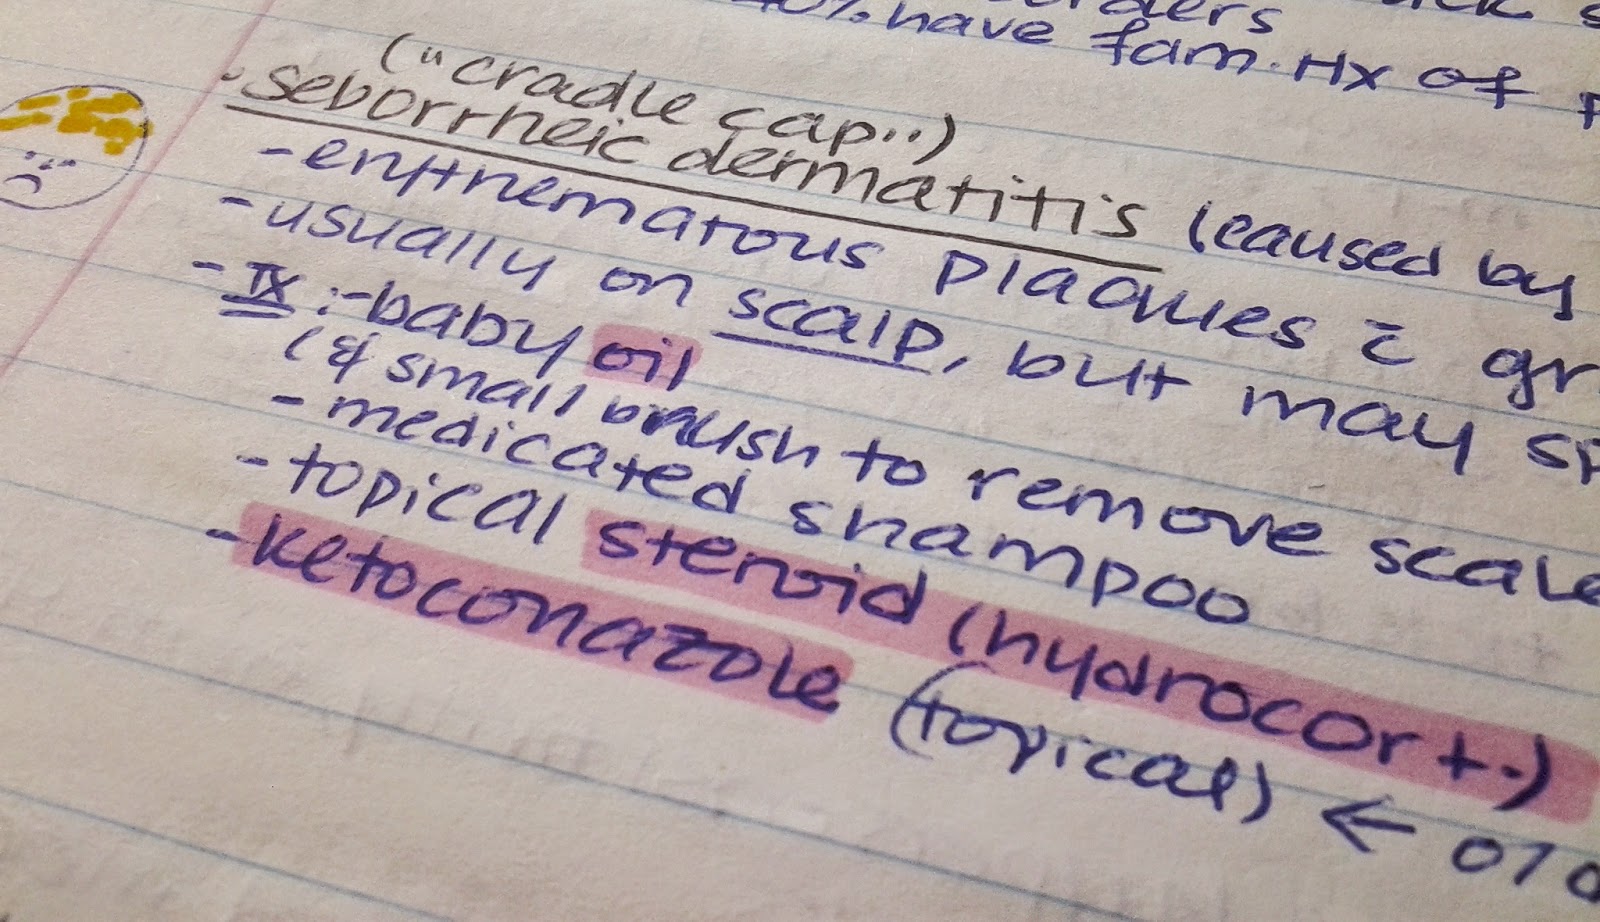 40% have fam. Hx of
("cradle cap..")
• seborrheic dermatitis (caused by
- erythematous plaques c̄ gr
- usually on scalp, but may sp
- Tx :- baby oil
(& small brush to remove scale
- medicated shampoo
- topical steroid (hydrocort.)
- ketoconazole (topical) ←